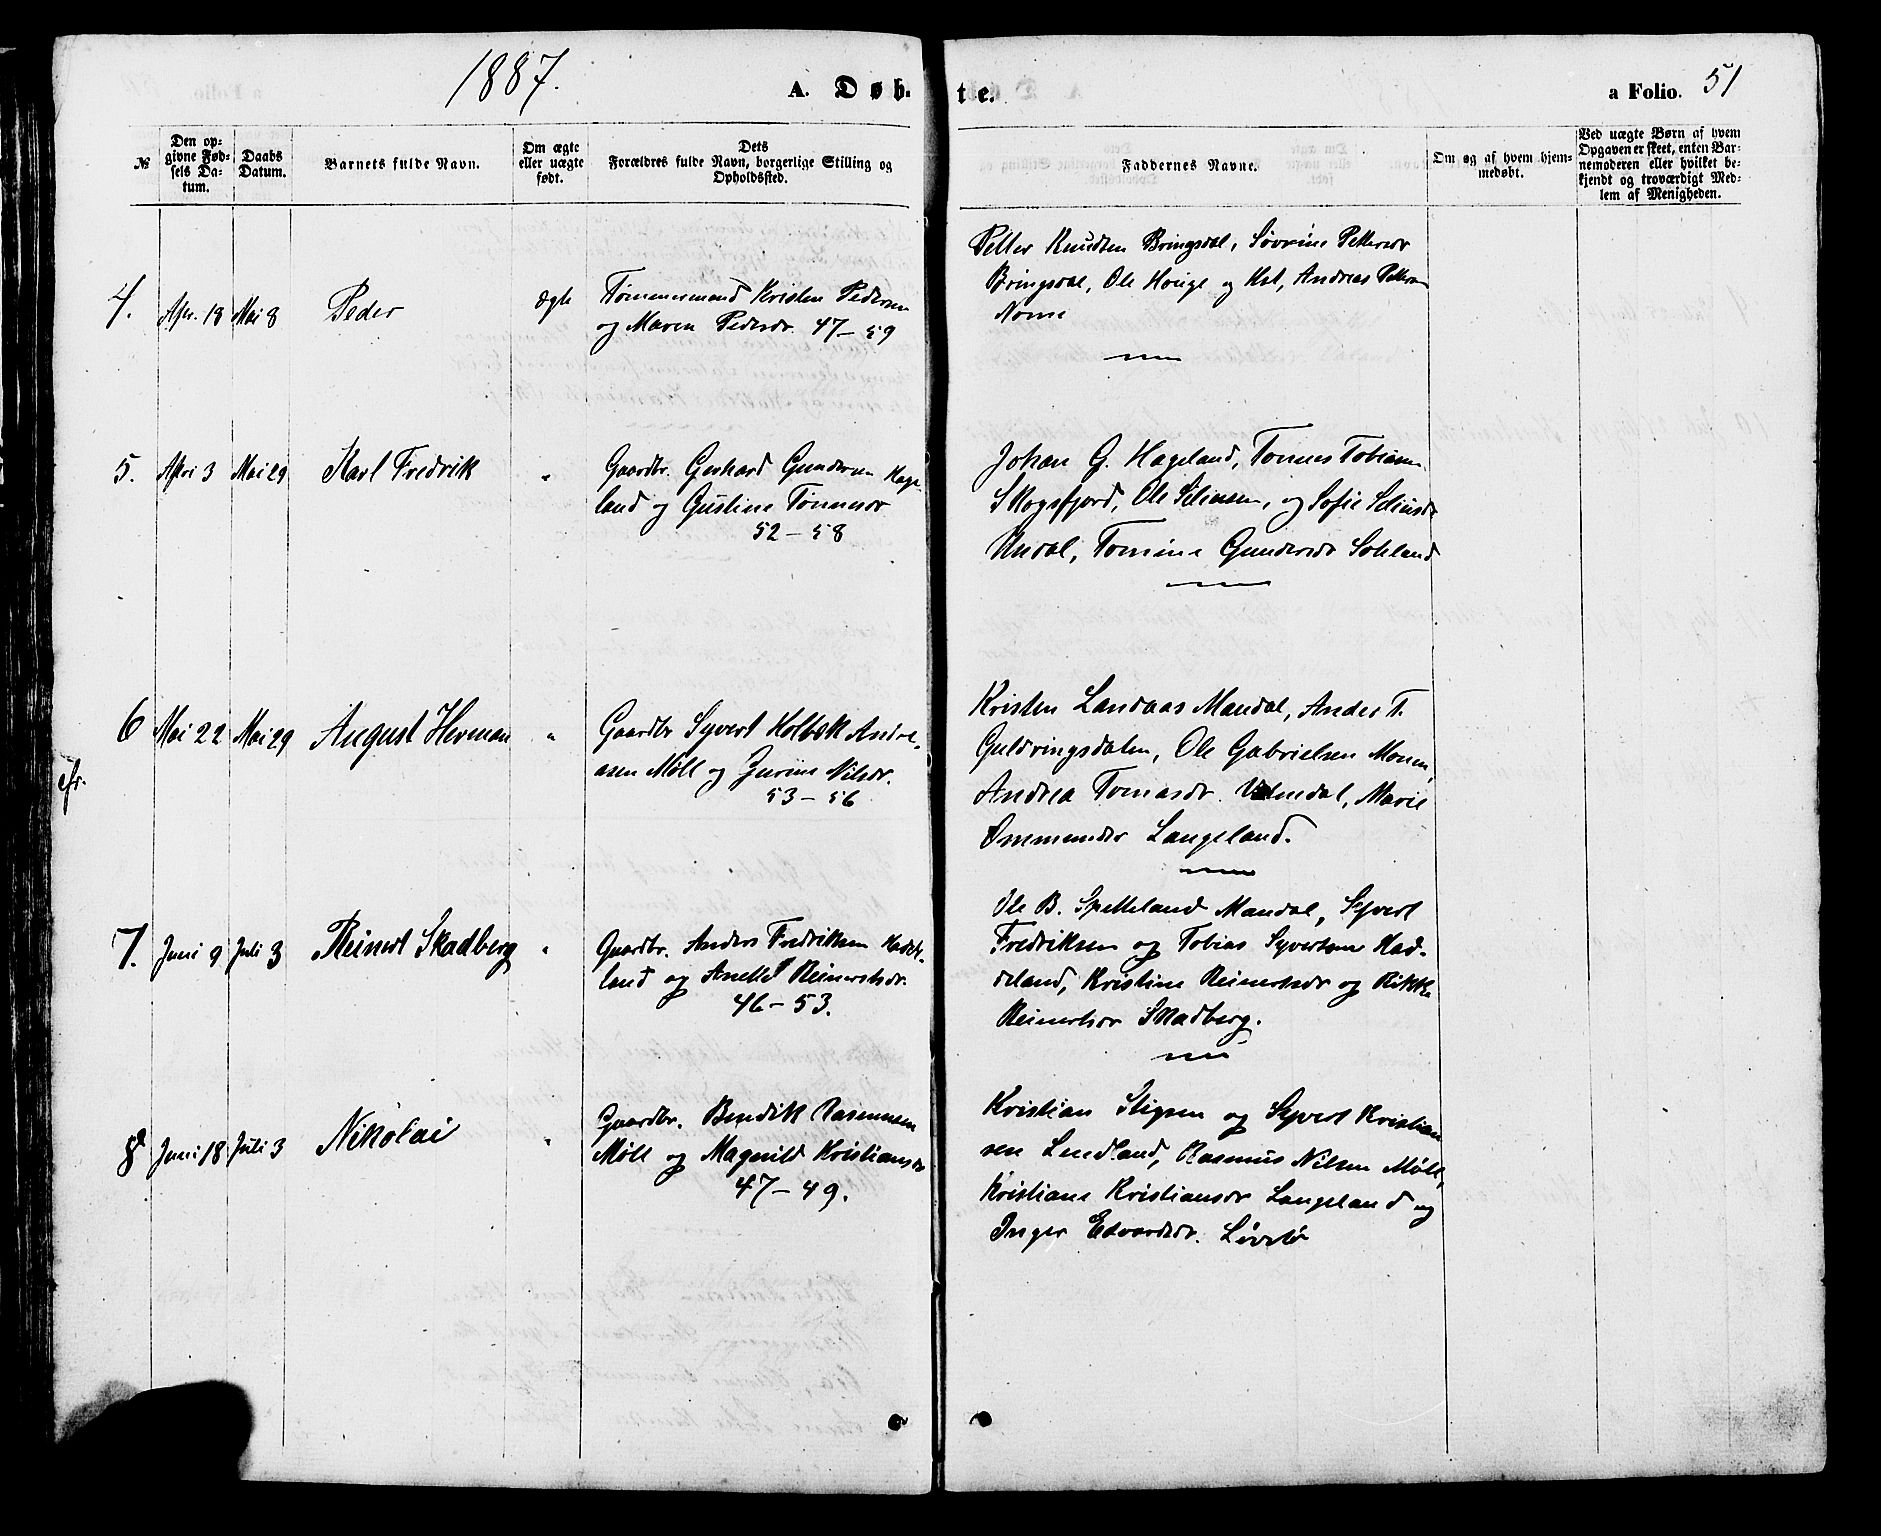 1887.
A. Døb- te. a Folio. 51
№
Den op-
givne Fød-
sels Da-
tum.
Daabs
Datum.
Barnets fulde Navn.
Om ægte
eller uægte
født.
Dets
Forældres fulde Navn, borgerlige Stilling og
Opholdssted.
Faddernes Navne.
Om og af hvem hjem-
medøbt.
Ved uægte Børn af hvem
Opgaven er skeet, enten Bar-
nemoderen eller hvilket be-
kjendt og troværdigt Med-
lem af Menigheden.
4. Apr. 18 Mai 8 Peder ægte
Tømmermand Kristen Pedersen
og Maren Pedersdr. 47–59
Petter Knudsen Bringsdal, Søvrine Pettersdr
Bringsdal, Ole Houge og Kst, Andreas Petters
Nome
5. Apri 3 Mai 29 Karl Fredrik "
Gaardbr. Gerhard Gundersen Hage-
land og Gustine Tønnesdr
52–58
Johan G. Hageland, Tønnes Tobiasen
Skogsfjord, Ole Selinsen, og Sofie Selinsdr
Undal, Tomine Gundersdr Sokland
6 Mai 22 Mai 29 August Herman "
Gaardbr Syvert Holbek Andre-
asen Møll og Zurine Nilsdr.
53–56
Kristen Landaas Mandal, Anders T.
Guldringsdalen, Ole Gabrielsen Monen,
Andrea Tomasdr. Valmdal, Marie
Ommundsdr Langeland.
cfr.
7. Juni 9 Juli 3 Reinert Skadberg "
Gaardbr. Anders Fredriksen Hadde-
land og Anette Reinertsdr.
46–53.
Ole B. Spetteland Mandal, Syvert
Fredriksen og Tobias Syvertsen Had-
deland, Kristine Reinertsdr og Rikke
Reinertsdr Skadberg.
8 Juni 18 Juli 3 Nikolai "
Gaardbr. Bendik Rasmussen
Møll og Magnild Kristiansdr
47–49.
Kristian Stigsen og Syvert Kristian
sen Lindland, Rasmus Nilsen Møll,
Kristiane Kristiansdr Langeland og
Inger Edvardsdr. Løvdø